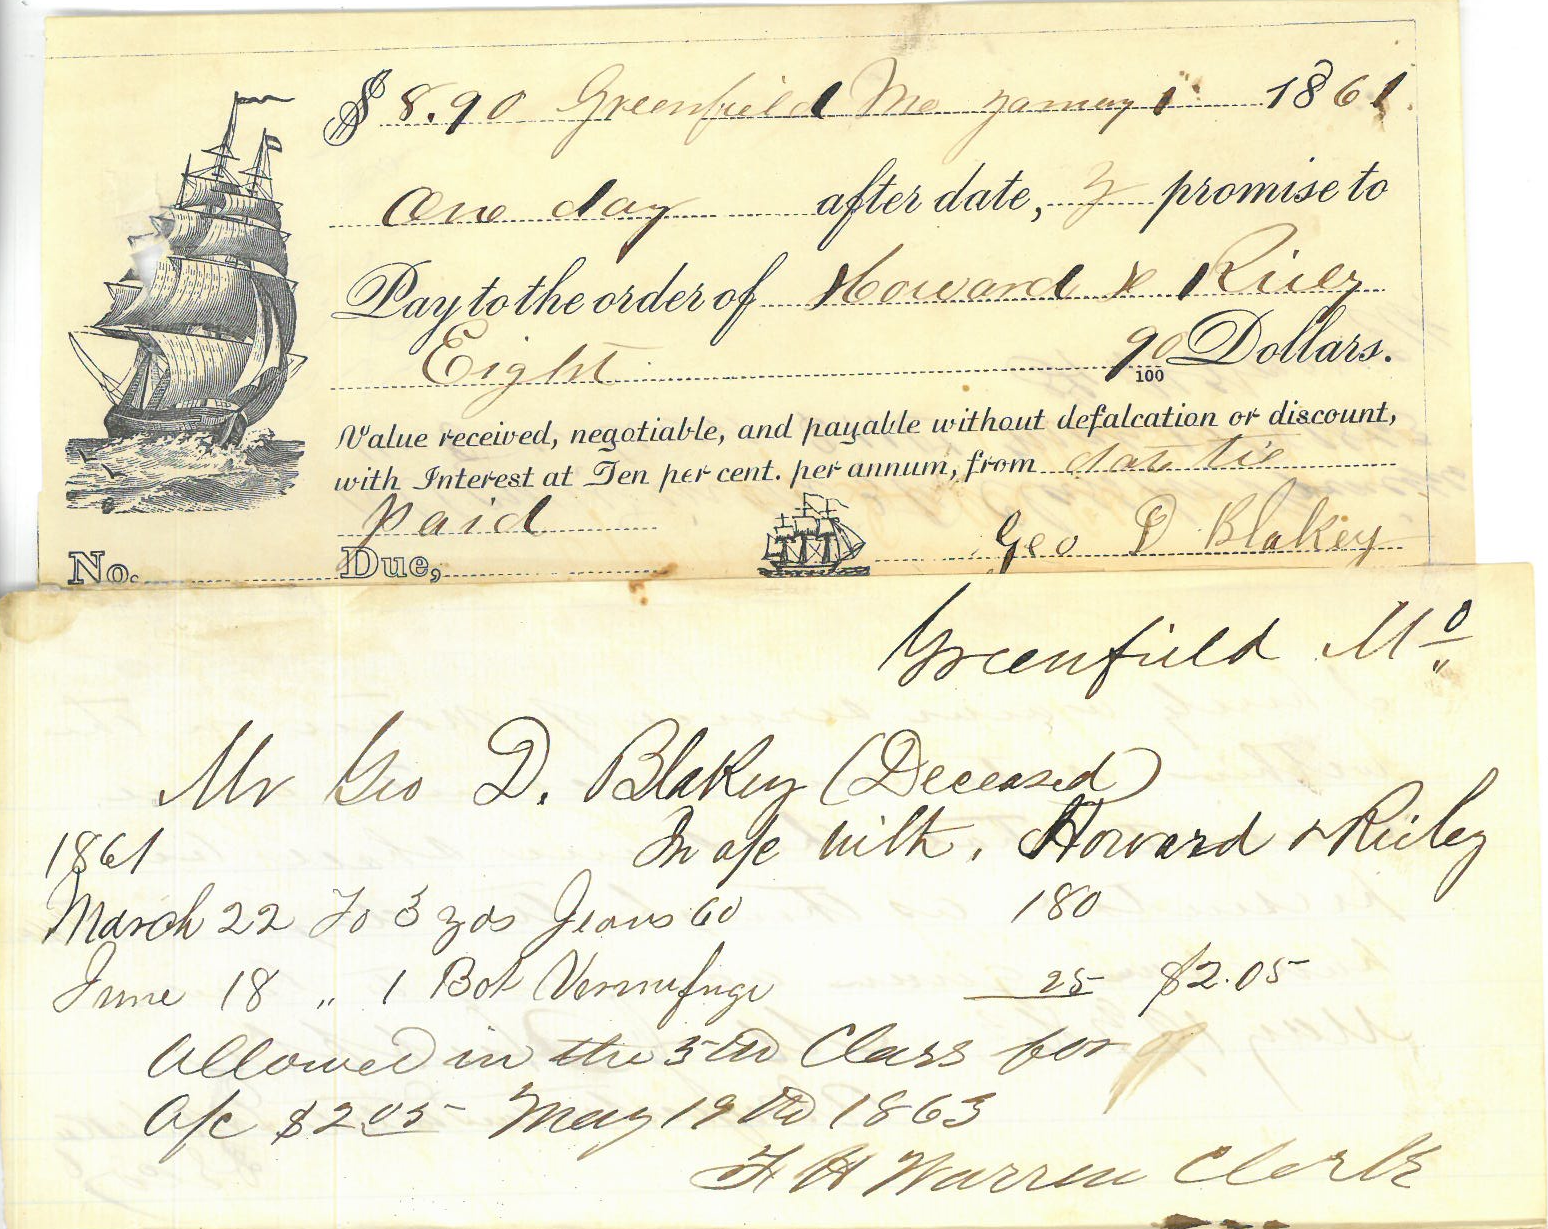 $ 8.90 Greenfield Mo January 1 1861
One day after date, I promise to
Pay to the order of Howard & Riley
Eight 90/100 Dollars.
Value received, negotiable, and payable without defalcation or discount,
with Interest at Ten per cent. per annum, from date till
paid
Geo D Blakey
No. Due,
Greenfield Mo
Mr Geo D. Blakey (Deceased)
1861 In a/c with, Howard & Riley
March 22 To 3 yds Jeans 60 180
June 18 " 1 Bot Vermifuge 25 $2.05
Allowed in the 5th Class for
a/c $2.05 May 19th 1863
Warren Clerk